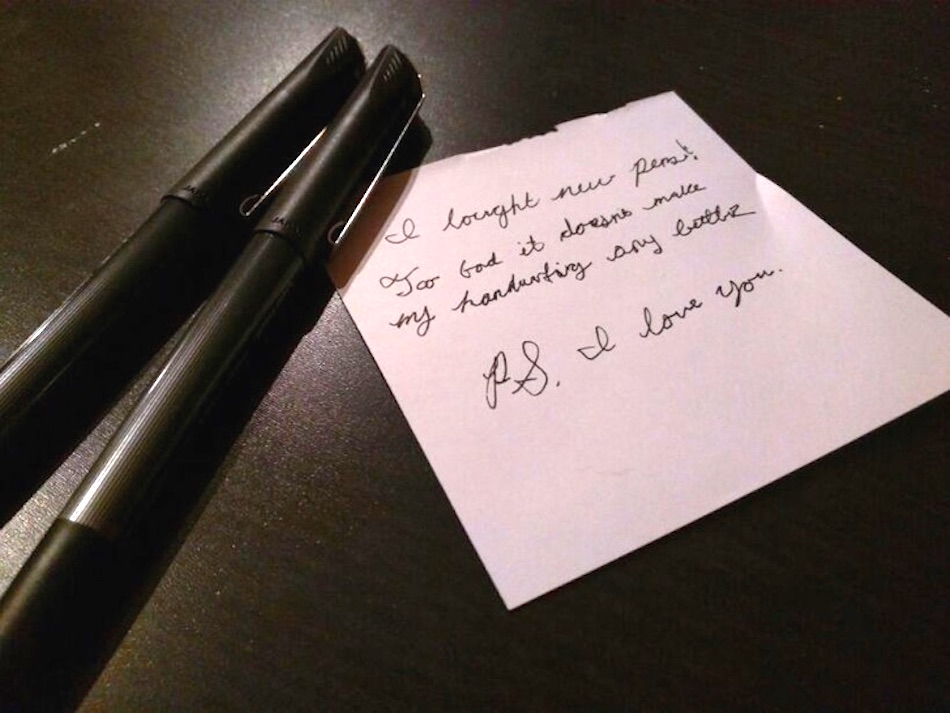 I bought new pens!
Too bad it doesnt make
my handwriting any better
PS. I love you.